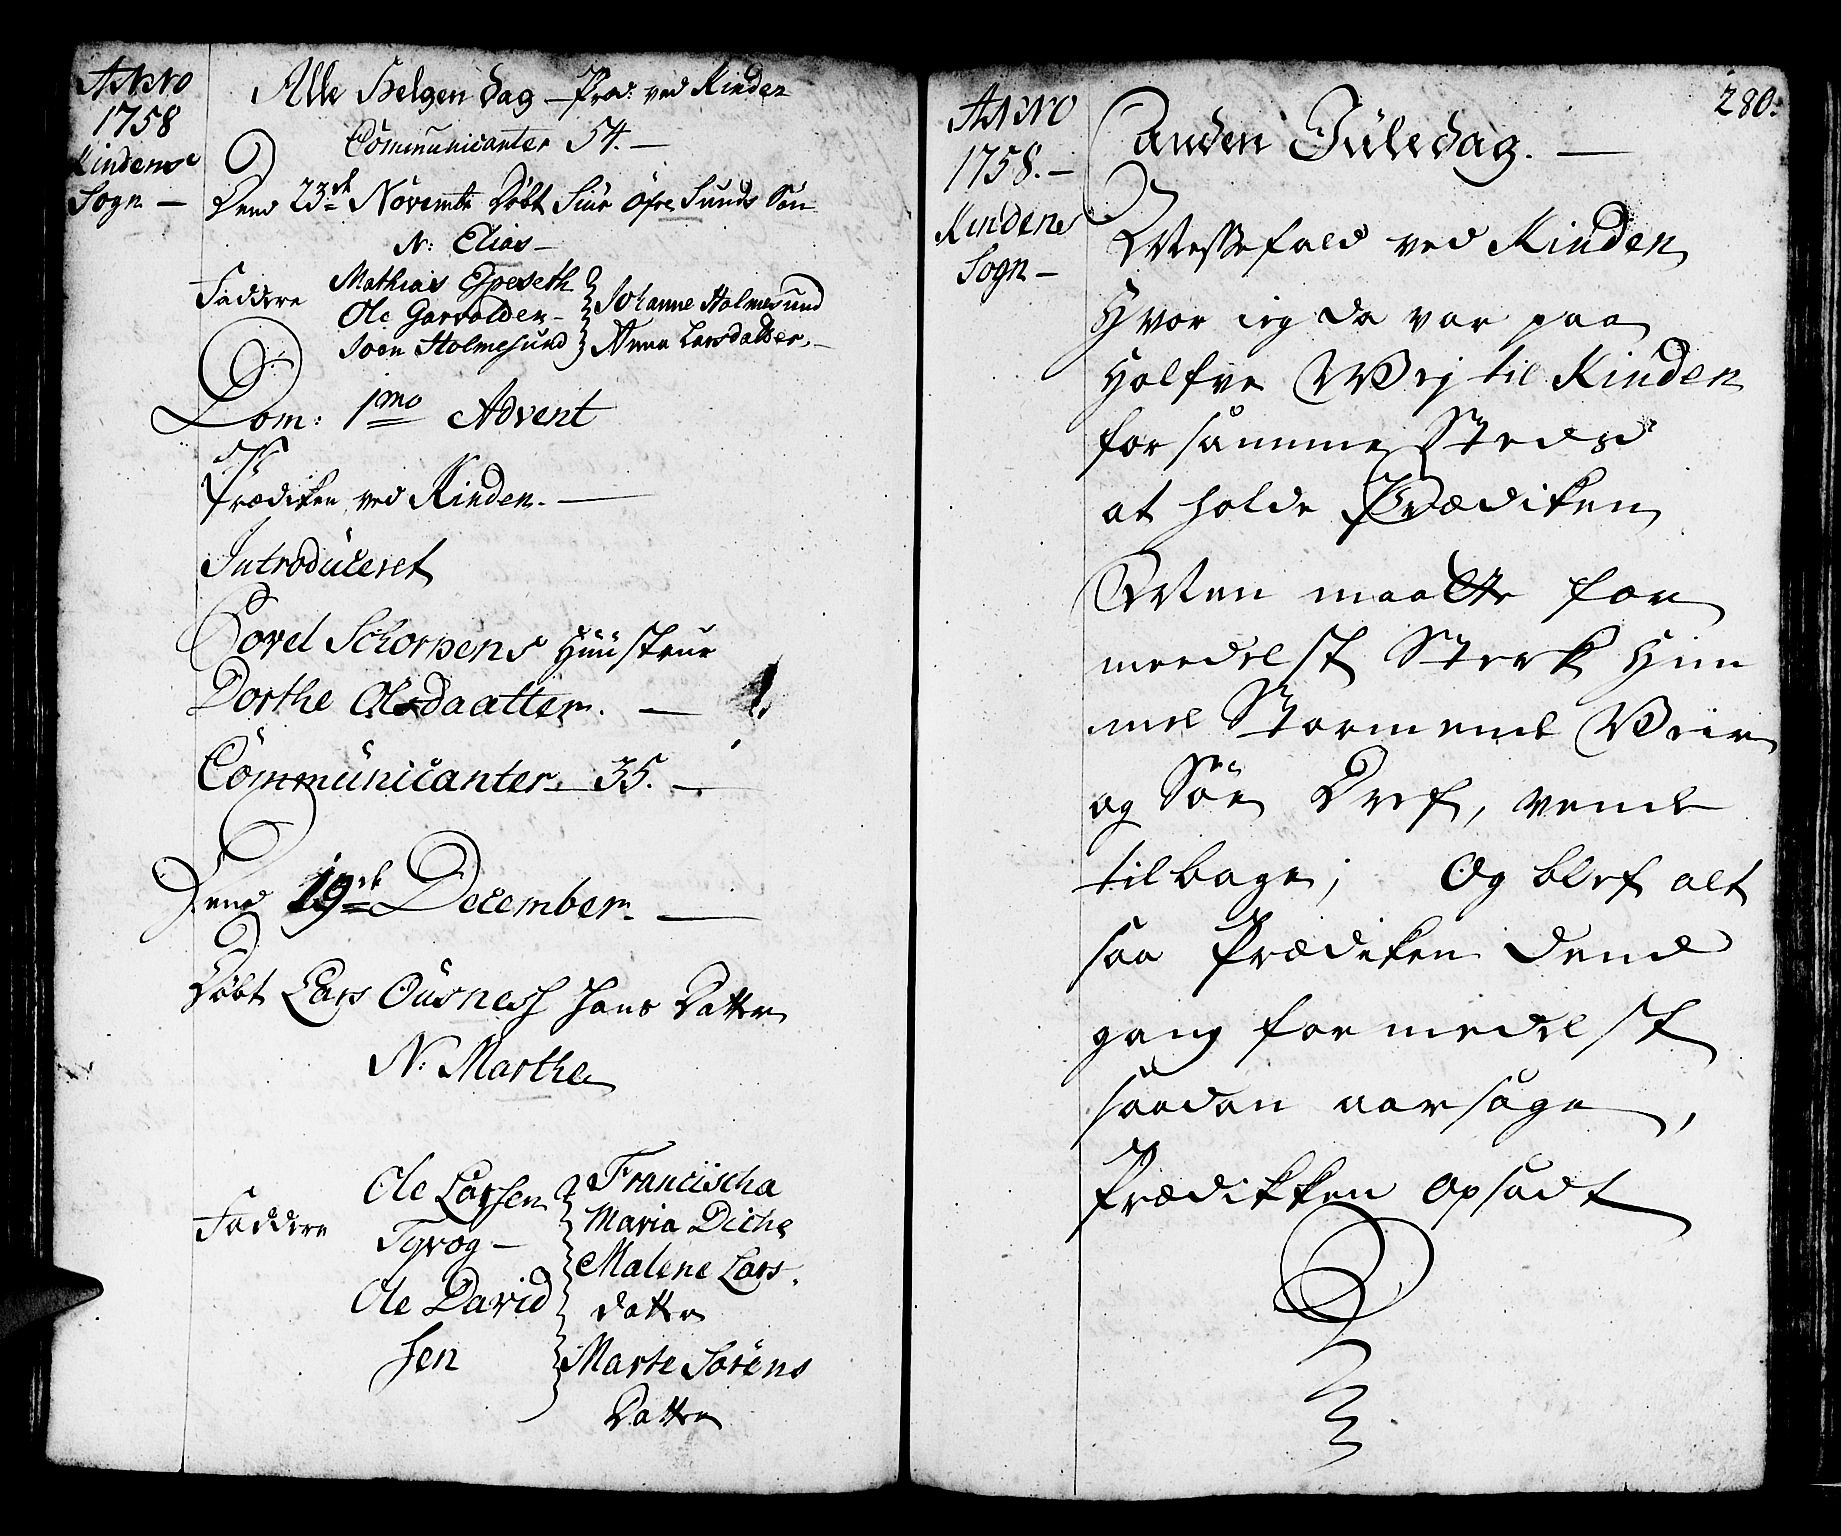 Anno
1758
Kindens
Sogn —
Alle Helgen Dag — Præd: ved Kinden
Communicanter 54. —
Dend 23de Novembr Døbt Siur Øfre Sunds Søn
N: Elias —
Faddere
Mathias Espeseth
Ole Garvolden —
Joen Holmesund
Johanne Holmesund
Anna Larsdatter. —
Dom: 1mo Advent
Prædiken ved Kinden. —
Introduceret
Povel Schorpens Huustrue
Dorthe Olsdaatter. — 1.
Communicanter. 35. —
Dend 19de December. —
Døbt Lars Ousnes hans Datter
N: Marthe
Faddere
Ole Larsen
Tyvog —
Ole David
sen
Francischa
Maria Diche
Malene Lars.
datter
Marte Sørens
Datter
280.
Anno
1758. —
Kindens
Sogn —
Anden Juledag. —
Messefald ved Kinden
Hvor ieg da var paa
Halfve Vej til Kinden
for samme Steds
at holde Prædiken
Men maatte for
meedelst Sterk Him
mel Stormende Veir
og Søe Dref, vende
tilbage; Og blef alt
saa Prædiken dend
gang formedelst
saadan aarsage,
Prædikken opsadt